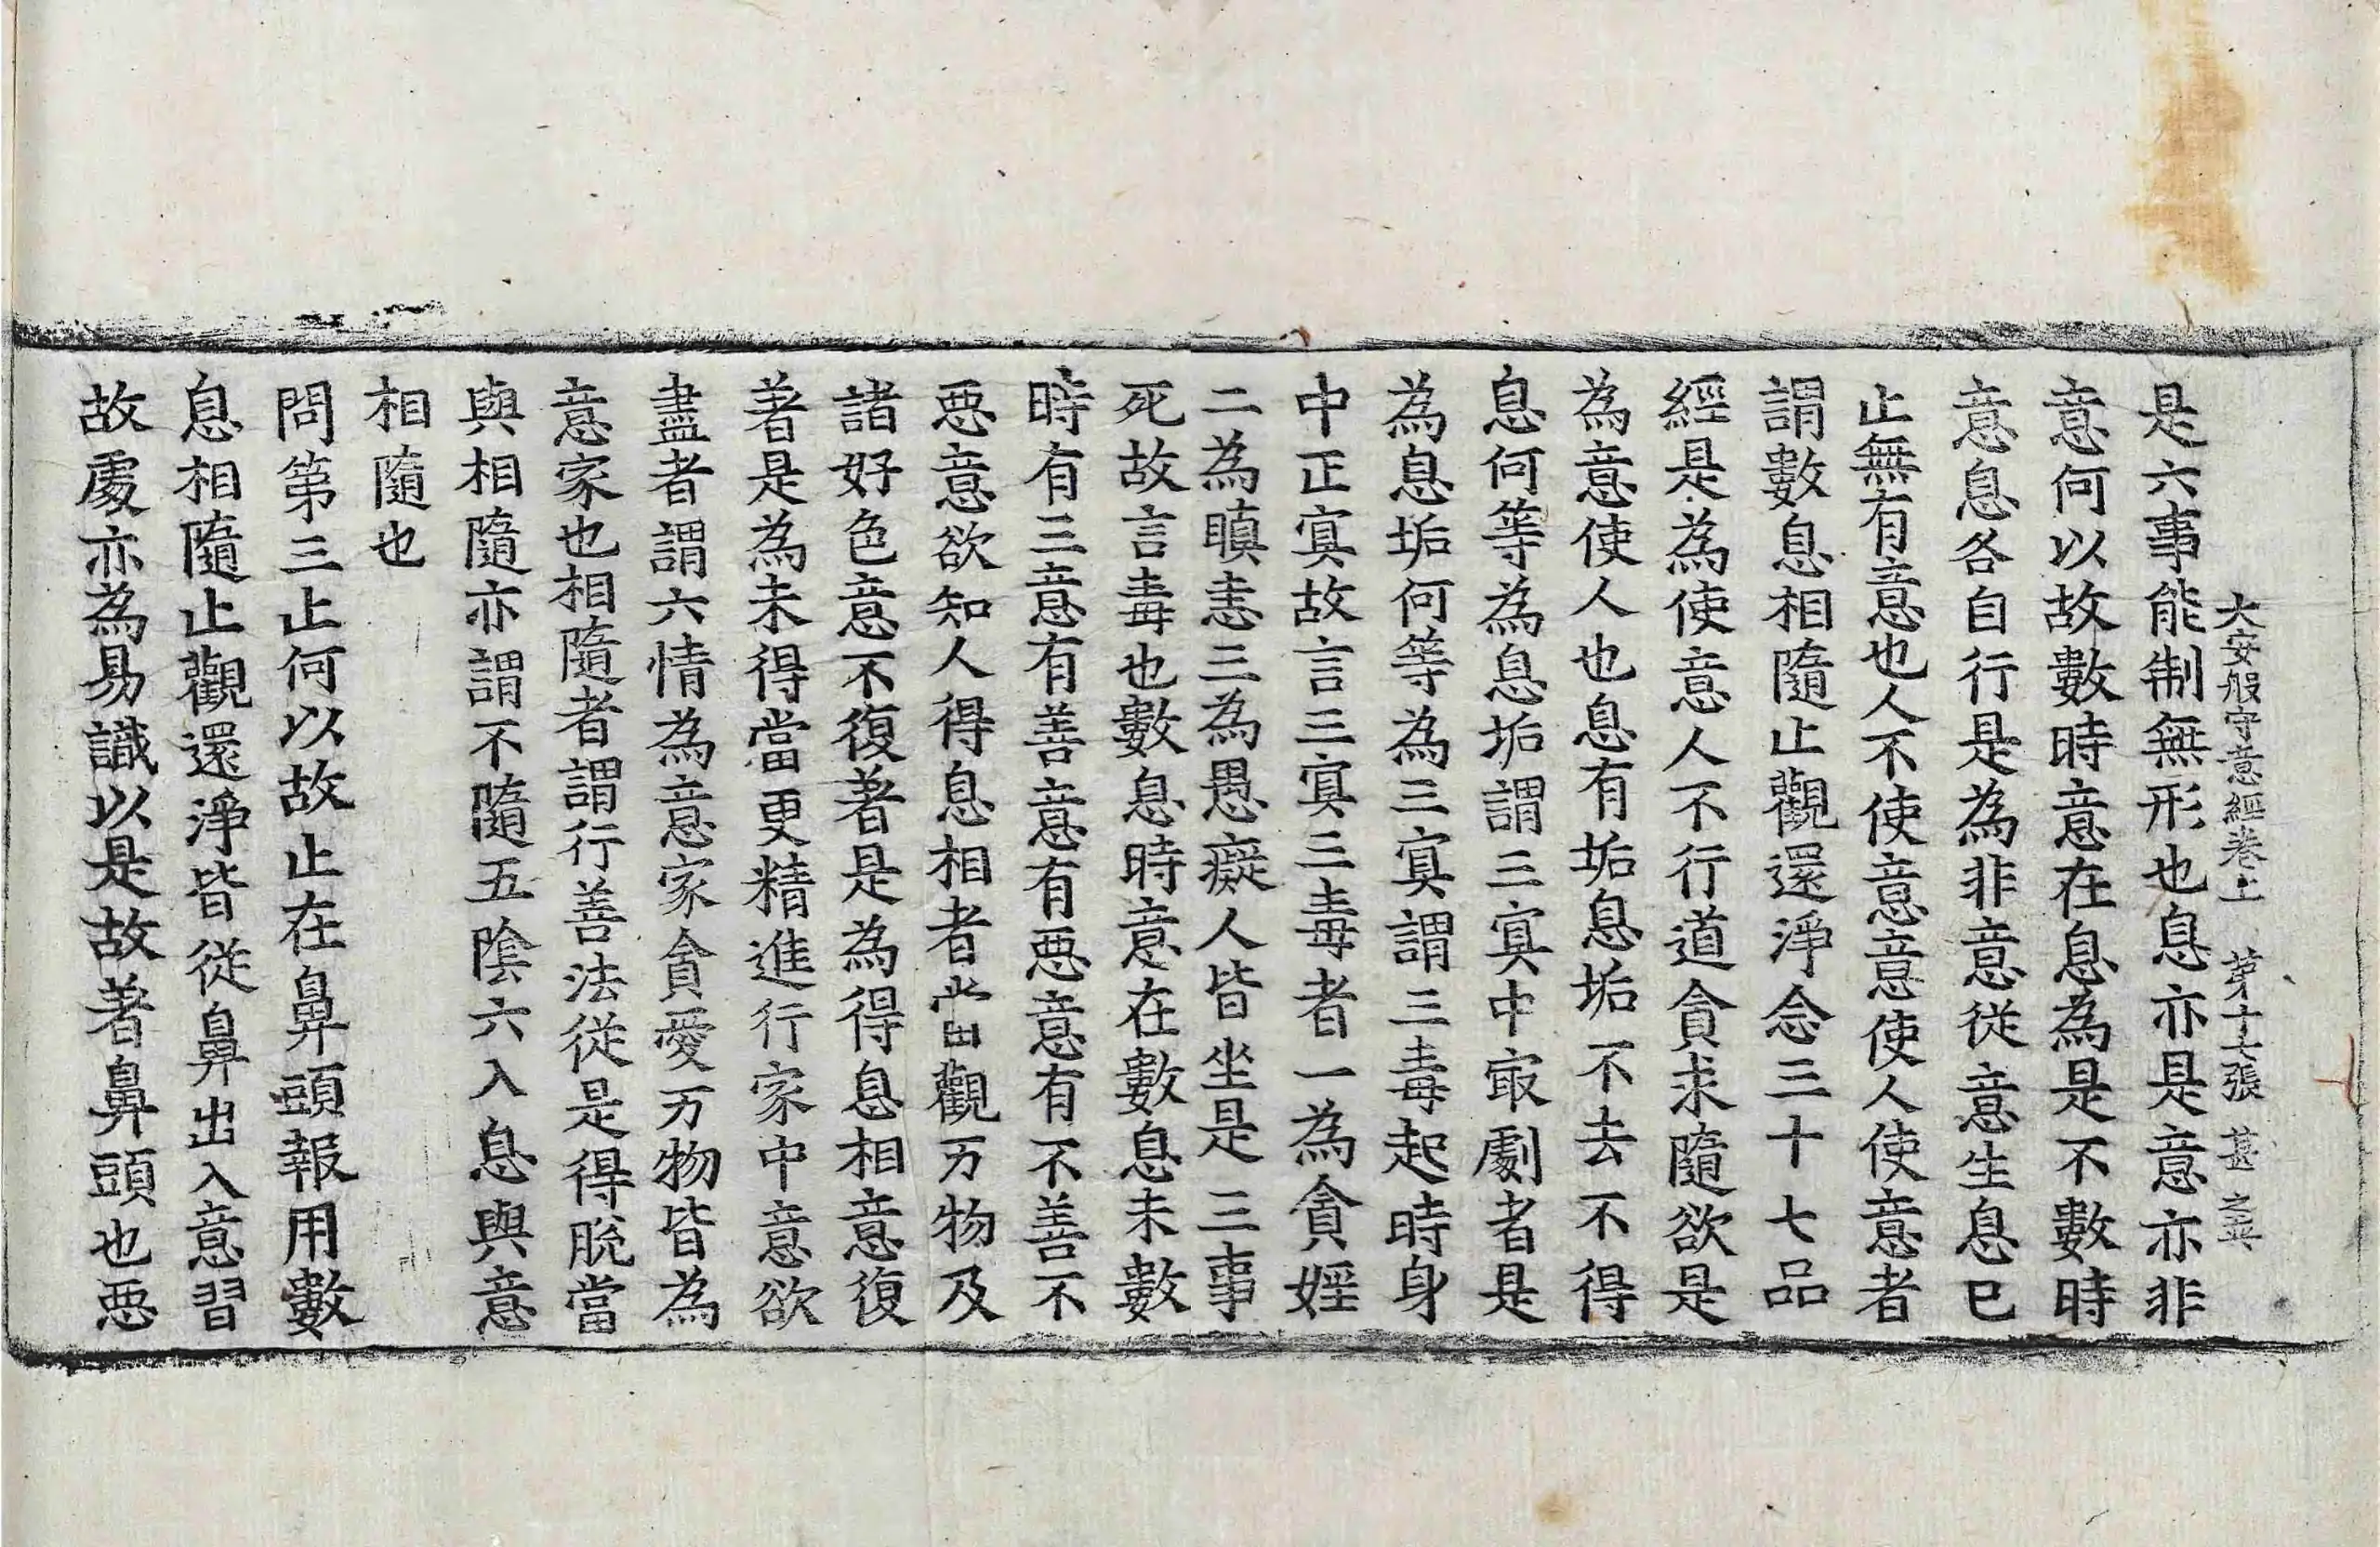 大安般守意經卷上 第十七張 甚 之興
是六事能制無形也息亦是意亦非
意何以故數時意在息為是不數時
意息各自行是為非意從意生息已
止無有意也人不使意意使人使意者
謂數息相隨止觀還淨念三十七品
經是為使意人不行道貪求隨欲是
為意使人也息有垢息垢不去不得
息何等為息垢謂三㝠中㝡劇者是
為息垢何等為三㝠謂三毒起時身
中正㝠故言三㝠三毒者一為貪婬
二為瞋恚三為愚癡人皆坐是三事
死故言毒也數息時意在數息未數
時有三意有善意有悪意有不善不
悪意欲知人得息相者當觀万物及
諸好色意不復著是為得息相意復
著是為未得當更精進行家中意欲
盡者謂六情為意家貪愛万物皆為
意家也相隨者謂行善法從是得脫當
與相隨亦謂不隨五陰六入息與意
相隨也
問第三止何以故止在鼻頭報用數
息相隨止觀還淨皆從鼻出入意習
故處亦為易識以是故著鼻頭也悪